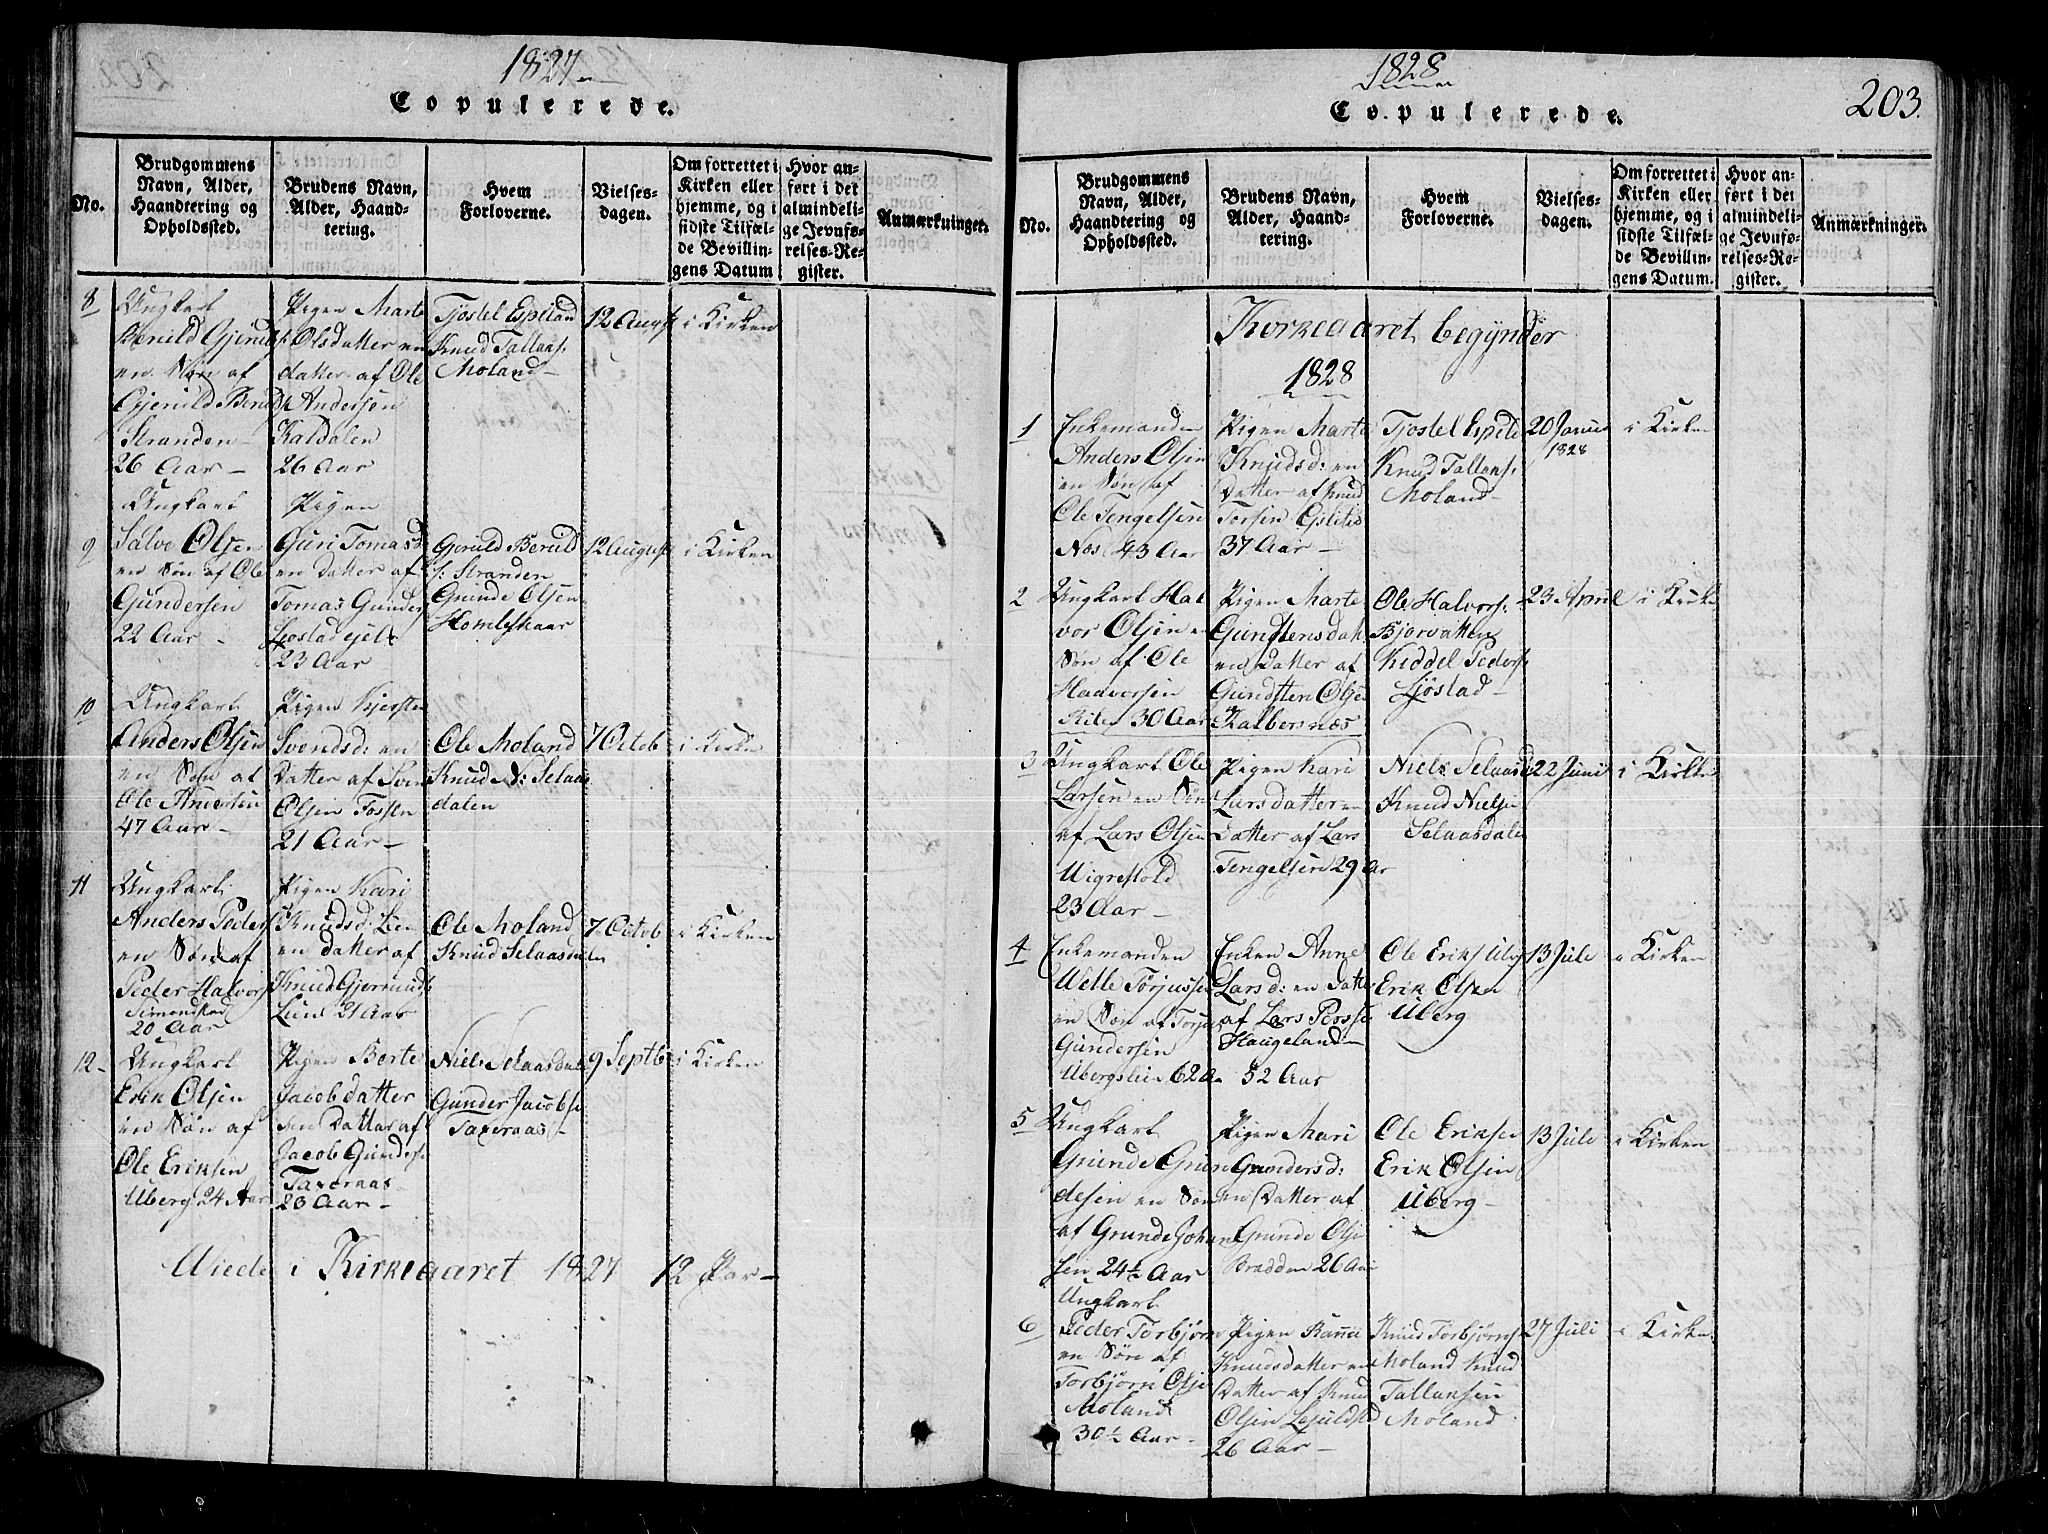 1827
Copulerede.
No.
Brudgommens Navn, Alder, Haandtering og Opholdssted.
Brudens Navn, Alder, Haandtering.
Hvem Forloverne.
Vielsesdagen.
Om forrettet i Kirken eller hjemme, og i sidste Tilfælde Bevillingens Datum
Hvor anført i det almindelige Jevnførelses-Register.
Anmærkninger.
8
Ungkarl
Beruld Gjeruls
en Søn af
Gjeruld Beruls
Stranden
26 Aar
Pigen Marte
Olsdatter en
datter af Ole
Andersøn
Kaldalen
26 Aar
Tjostel Espeland
Knud Tallaks:
Moland
12 August
i Kirken
9
Ungkarl
Salve Olsen
en Søn af Ole
Gundersen
22 Aar
Pigen
Guri Tomasd
en datter af
Tomas Gunders
23 Aar
Gjeruld Beruld
s: Stranden
Grunde Olsen
Homleskaar
12 August
i Kirken
10
Ungkarl
Anders Olsen
en Søn af
Ole Andersen
47 Aar
Pigen Kjersten
Svendsd: en
Datter af Sven
Olsen Fossen
21 Aar
Ole Moland
Knud N: Selaas
dalen
7 Octob
i Kirken
11
Ungkarl
Anders Peders
en Søn af
Peder Halvors
Simonstad
20 Aar
Pigen Kari
Knudsd: Lien
en datter af
Knud Gjermunds
Lien 21 Aar
Ole Moland
Knud Selaasdalen
7 Octob
i Kirken
12
Ungkarl
Erik Olsen
en Søn af
Ole Eriksen
Uberg 24 Aar
Pigen Berte
Jacobdatter
en Datter af
Jacob Gunders
Taxeraas
23 Aar
Niels Selaasdal
Gunder Jacobse
Taxeraas
9 Septb
i Kirken
Wiede i Kirkeaaret 1827 12 Par
1828
Copulerede.
203.
No.
Brudgommens Navn, Alder, Haandtering og Opholdssted.
Brudens Navn, Alder, Haandtering.
Hvem Forloverne.
Vielsesdagen.
Om forrettet i Kirken eller hjemme, og i sidste Tilfælde Bevillingens Datum.
Hvor anført i det almindelige Jevnførelses-Register.
Anmærkninger.
Kirkeaaret begynder
1828
1
Enkemanden
Anders Olsen
en Søn af
Ole Tengelsen
Næs 43 Aar
Pigen Marte
Knudsd: en
Datter af Knud
Torsen
37 Aar
Tjostel Espeln
Knud Tallaks:
Moland
20 Janua
1828
i Kirken
2
Ungkarl Hal
vor Olsen en
Søn af Ole
Haavorsen
30 Aar
Pigen Marte
Gundtensdat
en Datter af
Gundsten Olsen
Kalbersnæs
Ole Halvors:
Bjorvatten
Kiddel Peders
Ljøstad
23 April
i Kirke
3
Ungkarl Ole
Larsen en Søn
af Lars Olsen
Wigrestold
23 Aar
Pigen Kari
Larsdatter en
Datter af Lars
Tengelsen 29 Ar
Niels Selaasd
Knud Nielse
Selaasdale
22 Juni
i Kirken
4
Enkemanden
Welle Torjussen
en Søn af Torju
Gundersen
62 A
Enken Anne
Larsd: en Datte
af Lars Perss
Haugeland
52 Aar
Ole Eriks Ubg
Erik Olsen
Uberg
13 Jule
i Kirken
5
Ungkarl
Grunde Grun
desen en Søn
af Grunde Johan
sen 24½ Aar
Pigen Mari
Grundersd:
en Datter af
Grunde Olse
Bradden 26 Aar
Ole Erikse
Erik Olsen
Uberg
13 Jule
i Kirken
6
Ungkarl
Peder Torbjørn
en Søn af
Torbjørn Olse
Moland
30½ Aar
Pigen
Knudsdatter en
Datter af Knud
Olsen
26 Aar
Knud Torbjørns
Moland Knud
Tallaksen
Moland
27 Juli
i Kirke